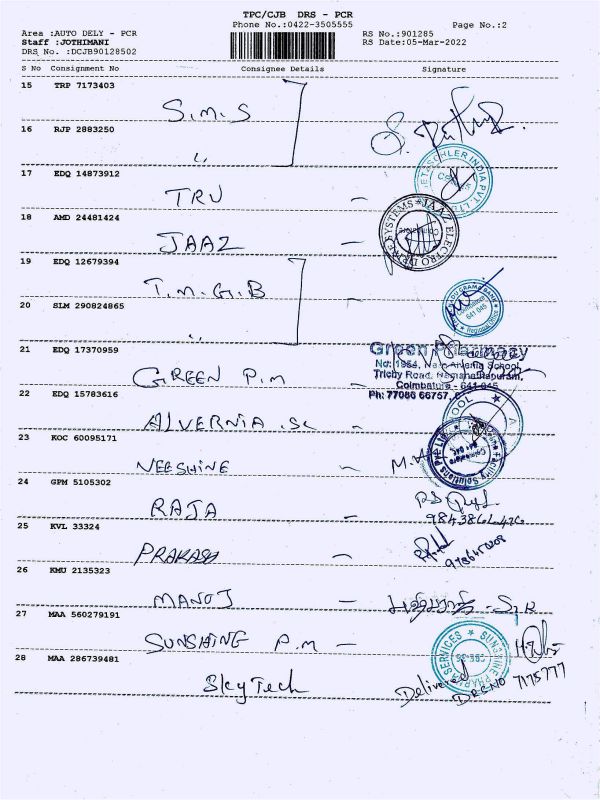 TPC/CJB DRS - PCR
Phone No.:0422-3505555
Page No.:2
Area :AUTO DELY - PCR
RS No.:901285
Staff :JOTHIMANI
RS Date:05-Mar-2022
DRS No. :DCJB90128502
S No Consignment No Consignee Details Signature
15 TRP 7173403
S.M.S
16 RJP 2883250
"
17 EDQ 14873912
TRU —
18 AMD 24481424
JAAZ —
JAAZ ELECTRO DEVICE SYSTEMS
19 EDQ 12679394
T.M.G.B —
20 SLM 290824865
"
641 045
Regional Office
21 EDQ 17370959
Green Pharmacy
School,
Trichy Road,
Coimbatore - 641 045
Ph: 77086 66757,
GREEN P.M —
22 EDQ 15783616
ALVERNIA .SC —
23 KOC 60095171
NEESHINE ~
Facility Solutions Pvt
24 GPM 5105302
RAJA —
25 KVL 33324
PRAKASH —
26 KMU 2135323
MANOJ —
27 MAA 560279191
SUNSHINE P.M —
SUNSHINE PHARMA SERVICES
28 MAA 286739481
Sky Tech
Delivered
DRS NO 7175777